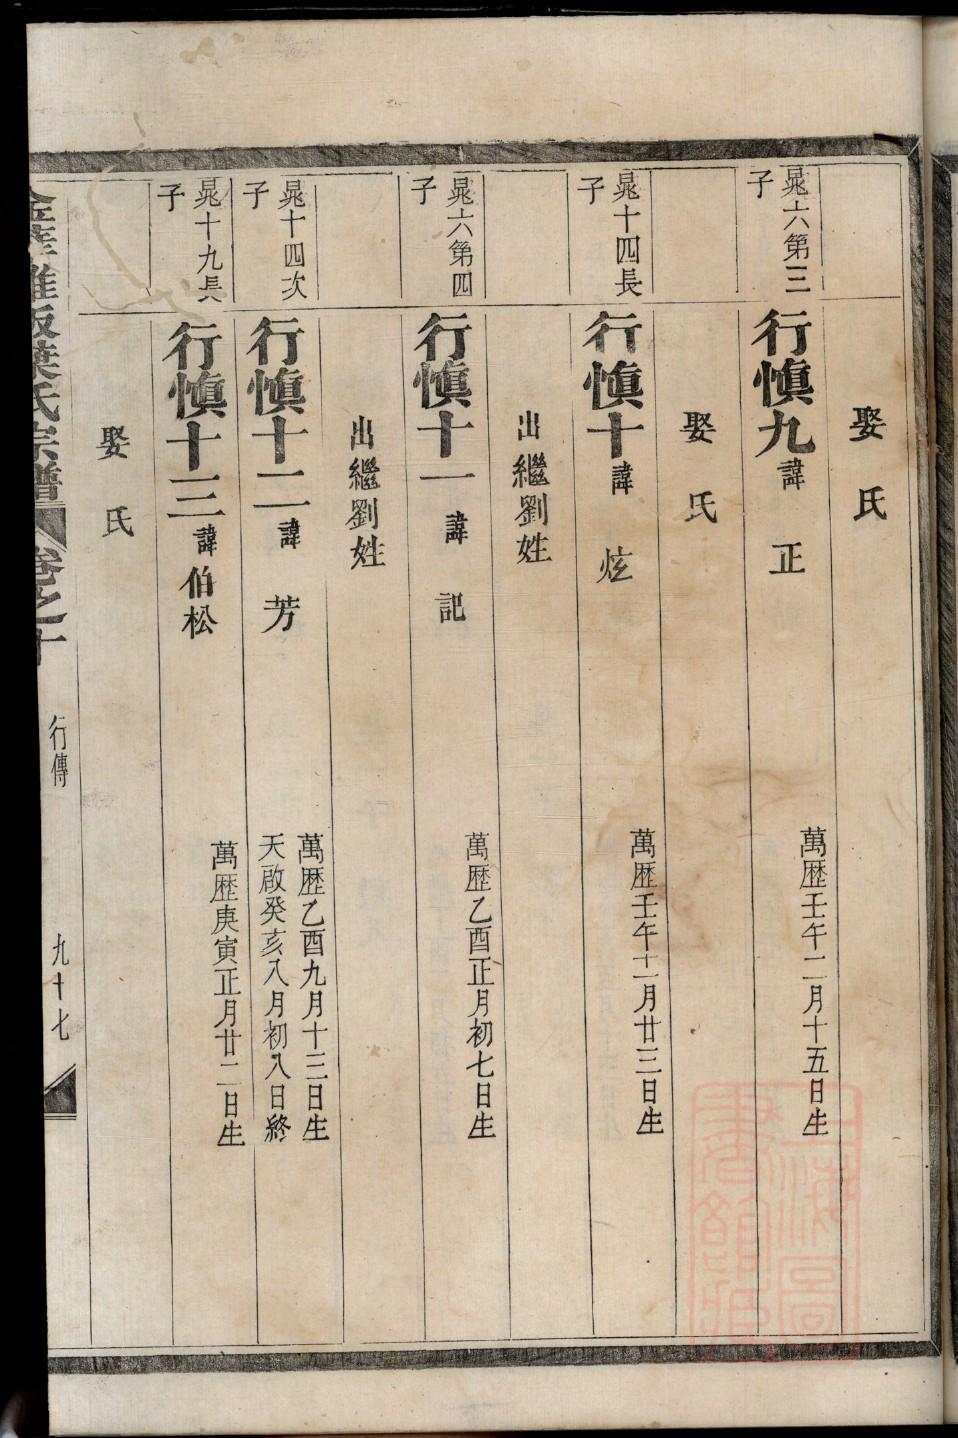 娶 氏
晁六第三子
行慎九 諱 正 萬歴壬午二月十五日生
娶 氏
晁十四長子
行慎十 諱 炫 萬歴壬午十一月廿三日生
出繼劉姓
晁六第四子
行慎十一 諱 記 萬歴乙酉正月初七日生
出繼劉姓
晁十四次子
行慎十二 諱 芳 萬歴乙酉九月十三日生
天啟癸亥八月初八日終
晁十九長子
行慎十三 諱 伯松 萬歴庚寅正月廿二日生
娶 氏
葉氏宗譜 卷之十 行傳 九十七
上海圖書館藏